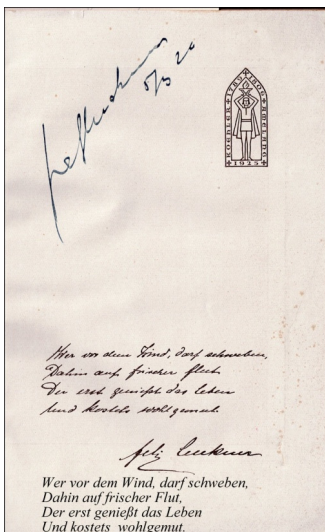 5/3 20
KOEHLER + 1789 + 1909 + AMELANG
+ 1925 +
Wer vor dem Wind, darf schweben,
Dahin auf frischer Flut
Der erst genießt das Leben
Und kostets wohlgemut
Felix Luckner
Wer vor dem Wind, darf schweben,
Dahin auf frischer Flut,
Der erst genießt das Leben
Und kostets wohlgemut.